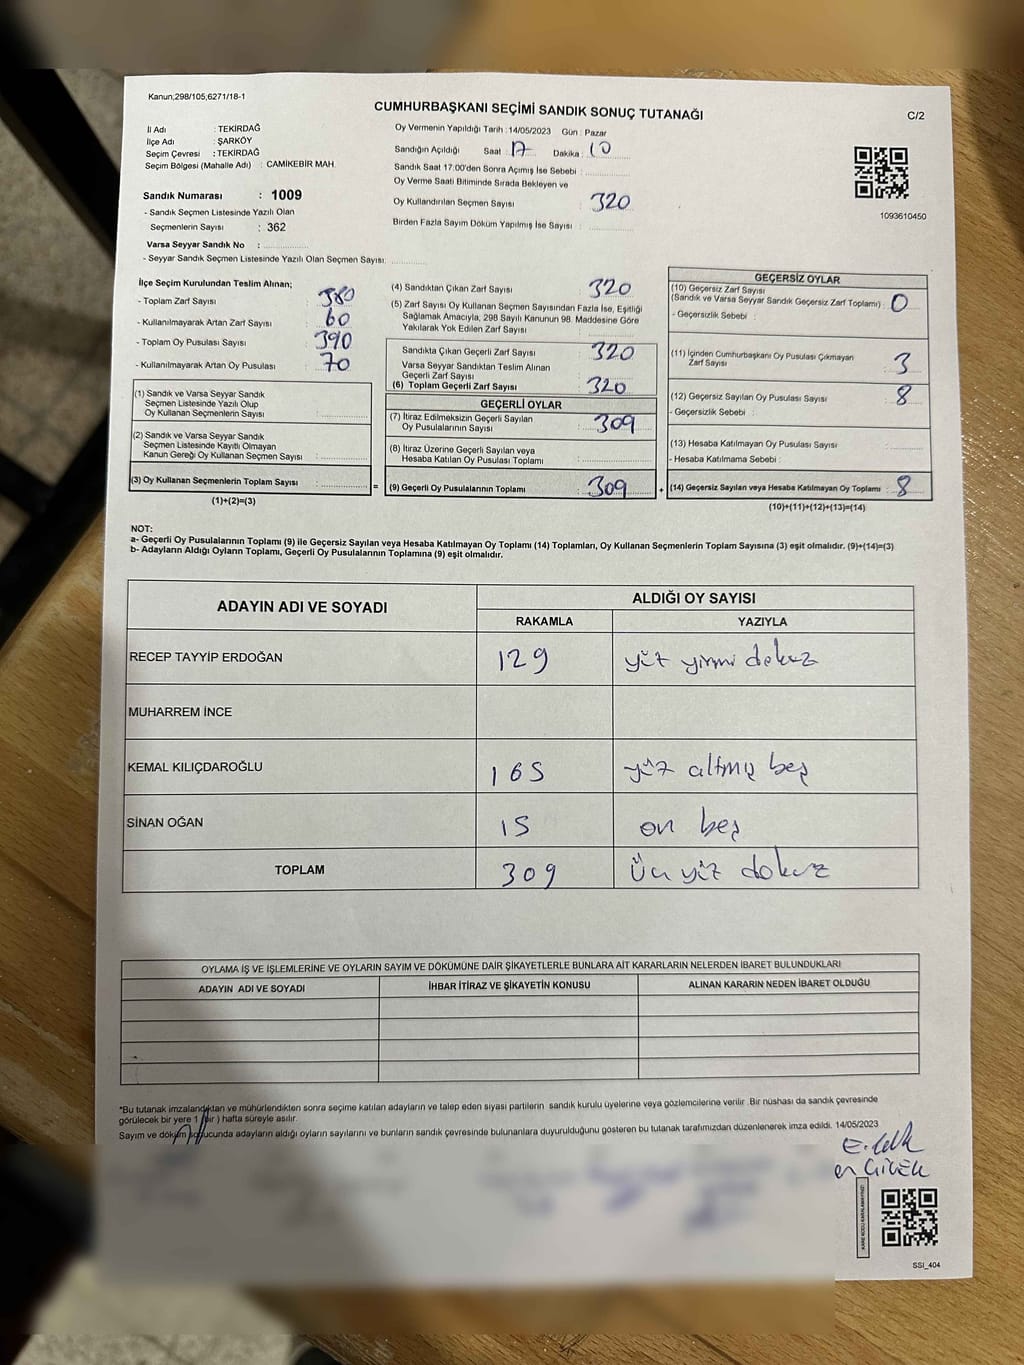 Kanun;298/105,6271/18-1
CUMHURBAŞKANI SEÇİMİ SANDIK SONUÇ TUTANAĞI
C/2
İl Adı : TEKİRDAĞ
İlçe Adı : ŞARKÖY
Seçim Çevresi : TEKİRDAĞ
Seçim Bölgesi (Mahalle Adı) : CAMİKEBİR MAH.
Sandık Numarası : 1009
- Sandık Seçmen Listesinde Yazılı Olan
Seçmenlerin Sayısı : 362
Varsa Seyyar Sandık No :
- Seyyar Sandık Seçmen Listesinde Yazılı Olan Seçmen Sayısı:
Oy Vermenin Yapıldığı Tarih : 14/05/2023 Gün : Pazar
Sandığın Açıldığı Saat : 17 Dakika : 10
Sandık Saat 17:00'den Sonra Açımış İse Sebebi :
Oy Verme Saati Bitiminde Sırada Bekleyen ve
Oy Kullandırılan Seçmen Sayısı : 320
Birden Fazla Sayım Döküm Yapılmış İse Sayısı :
1093610450
İlçe Seçim Kurulundan Teslim Alınan;
- Toplam Zarf Sayısı : 380
- Kullanılmayarak Artan Zarf Sayısı : 60
- Toplam Oy Pusulası Sayısı : 390
- Kullanılmayarak Artan Oy Pusulası : 70
(1) Sandık ve Varsa Seyyar Sandık
Seçmen Listesinde Yazılı Olup
Oy Kullanan Seçmenlerin Sayısı :
(2) Sandık ve Varsa Seyyar Sandık
Seçmen Listesinde Kayıtlı Olmayan
Kanun Gereği Oy Kullanan Seçmen Sayısı :
(3) Oy Kullanan Seçmenlerin Toplam Sayısı :
(1)+(2)=(3)
=
(4) Sandıktan Çıkan Zarf Sayısı : 320
(5) Zarf Sayısı Oy Kullanan Seçmen Sayısından Fazla İse, Eşitliği
Sağlamak Amacıyla, 298 Sayılı Kanunun 98. Maddesine Göre
Yakılarak Yok Edilen Zarf Sayısı :
Sandıkta Çıkan Geçerli Zarf Sayısı : 320
Varsa Seyyar Sandıktan Teslim Alınan
Geçerli Zarf Sayısı
(6) Toplam Geçerli Zarf Sayısı : 320
GEÇERLİ OYLAR
(7) İtiraz Edilmeksizin Geçerli Sayılan
Oy Pusulalarının Sayısı : 309
(8) İtiraz Üzerine Geçerli Sayılan veya
Hesaba Katılan Oy Pusulası Toplamı :
(9) Geçerli Oy Pusulalarının Toplamı : 309
+
GEÇERSİZ OYLAR
(10) Geçersiz Zarf Sayısı
(Sandık ve Varsa Seyyar Sandık Geçersiz Zarf Toplamı) : 0
- Geçersizlik Sebebi :
(11) İçinden Cumhurbaşkanı Oy Pusulası Çıkmayan
Zarf Sayısı : 3
(12) Geçersiz Sayılan Oy Pusulası Sayısı : 8
- Geçersizlik Sebebi :
(13) Hesaba Katılmayan Oy Pusulası Sayısı :
- Hesaba Katılmama Sebebi :
(14) Geçersiz Sayılan veya Hesaba Katılmayan Oy Toplamı : 8
(10)+(11)+(12)+(13)=(14)
NOT:
a- Geçerli Oy Pusulalarının Toplamı (9) ile Geçersiz Sayılan veya Hesaba Katılmayan Oy Toplamı (14) Toplamları, Oy Kullanan Seçmenlerin Toplam Sayısına (3) eşit olmalıdır. (9)+(14)=(3)
b- Adayların Aldığı Oyların Toplamı, Geçerli Oy Pusulalarının Toplamına (9) eşit olmalıdır.
ADAYIN ADI VE SOYADI
ALDIĞI OY SAYISI
RAKAMLA YAZIYLA
RECEP TAYYİP ERDOĞAN 129 yüz yirmi dokuz
MUHARREM İNCE
KEMAL KILIÇDAROĞLU 165 yüz altmış beş
SİNAN OĞAN 15 on beş
TOPLAM 309 Üç yüz dokuz
OYLAMA İŞ VE İŞLEMLERİNE VE OYLARIN SAYIM VE DÖKÜMÜNE DAİR ŞİKAYETLERLE BUNLARA AİT KARARLARIN NELERDEN İBARET BULUNDUKLARI
ADAYIN ADI VE SOYADI İHBAR İTİRAZ VE ŞİKAYETİN KONUSU ALINAN KARARIN NEDEN İBARET OLDUĞU
*Bu tutanak imzalandıktan ve mühürlendikten sonra seçime katılan adayların ve talep eden siyasi partilerin sandık kurulu üyelerine veya gözlemcilerine verilir .Bir nüshası da sandık çevresinde
görülecek bir yere 1 (bir ) hafta süreyle asılır.
Sayım ve döküm sonucunda adayların aldığı oyların sayılarını ve bunların sandık çevresinde bulunanlara duyurulduğunu gösteren bu tutanak tarafımızdan düzenlenerek imza edildi. 14/05/2023
SSI_404